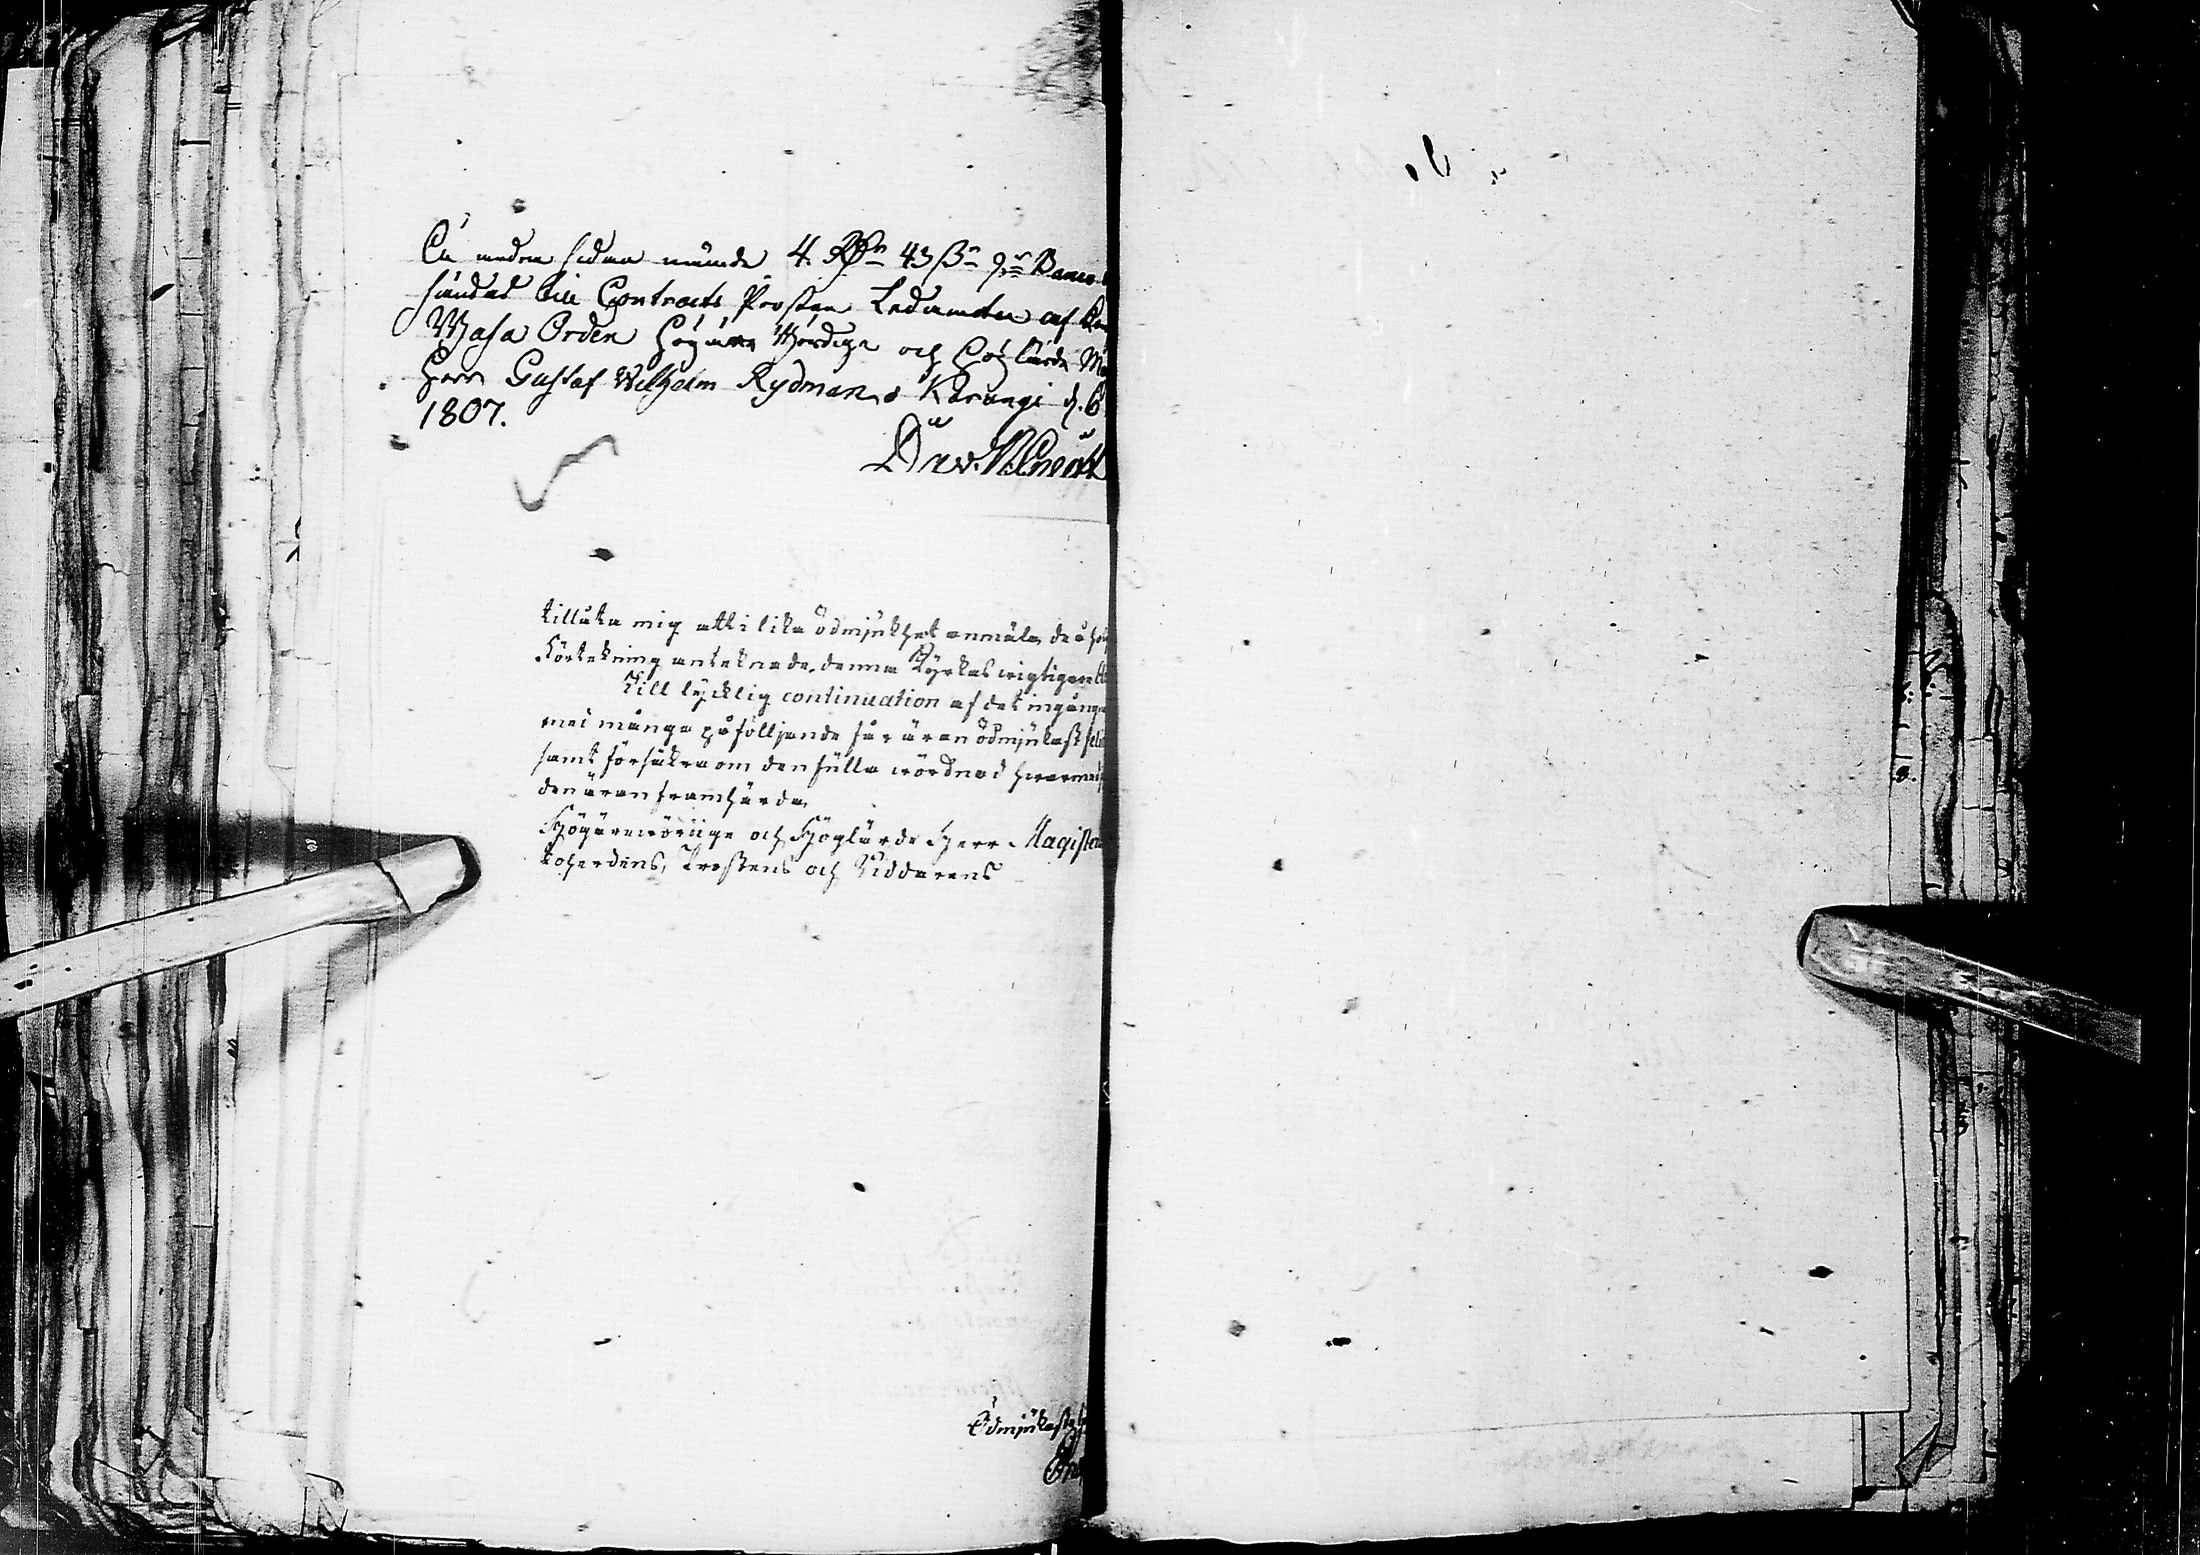 Å andra sidan nämde 4 Rdr 43 ß 9 rs Banco
sändes till Contracts Prosten Ledamoten af
Wasa Orden Högärewördige och Höglärde
Herr Gustaf Wilhelm Rydman. Karungi d. 6
1807.
tillåta mig att i lika ödmjukhet anmäla de å
Förtekning anteknade, denna Kyrkas wigtigare
Till lycklig continuation af det ingångna
med många påfölljande får äran ödmjukast
samt försäkra om den fulla wördnad hwarmed
den äran framhärda
Högärewördige och Höglärde Herr Magistern
koherdens, Prostens och Riddarens
Ödmjukaste